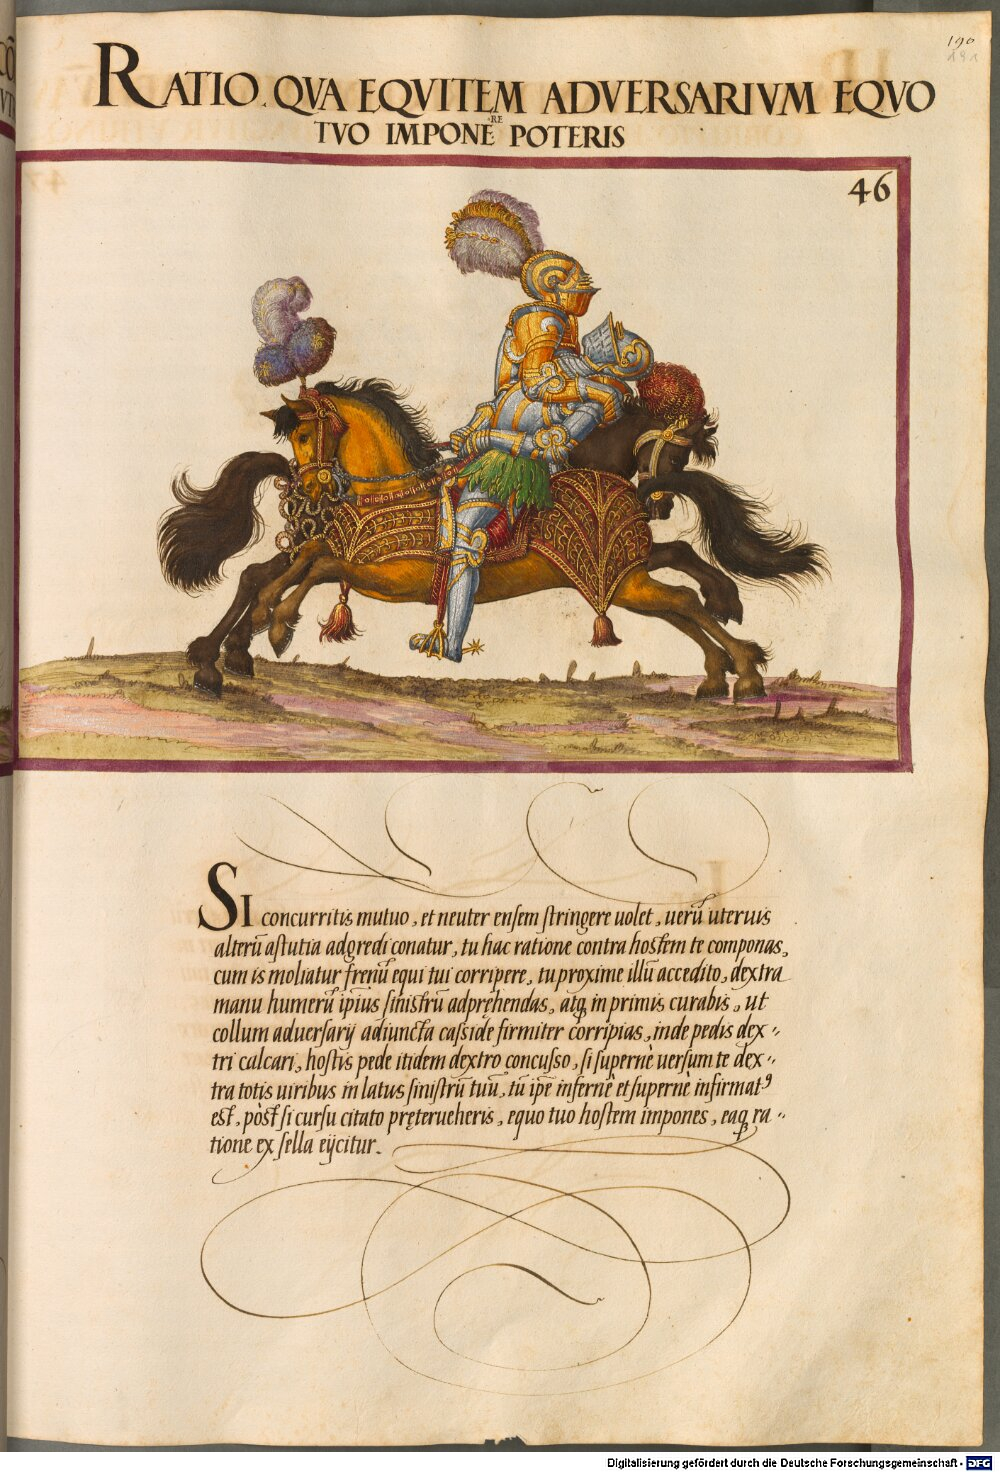 190
191
RATIO QVA EQVITEM ADVERSARIVM EQVO
TVO IMPONERE POTERIS
46
SI concurritis mutuo, et neuter ensem stringere uolet, uerū uteruis
alterū astutia adgredi conatur, tu hac ratione contra hostem te componas,
cum is moliatur frenū equi tui corripere, tu proxime illū accedito, dextra
manu humerū ipīus sinistrū adpręhendas, atq̢ in primis curabis, ut
collum aduersarij adiuncta casside firmiter corripias, inde pedis dex=
tri calcari, hostis pede itidem dextro concusso, si supernè uersum te dex=
tra totis uiribus in latus sinistrū tuū, tū ip̄e infernè et supernè infirmatꝰ
est, pòst si cursu citato pręterueheris, equo tuo hostem impones, eaq̢ ra=
tione ex sella eijcitur.
Digitalisierung gefördert durch die Deutsche Forschungsgemeinschaft - DFG